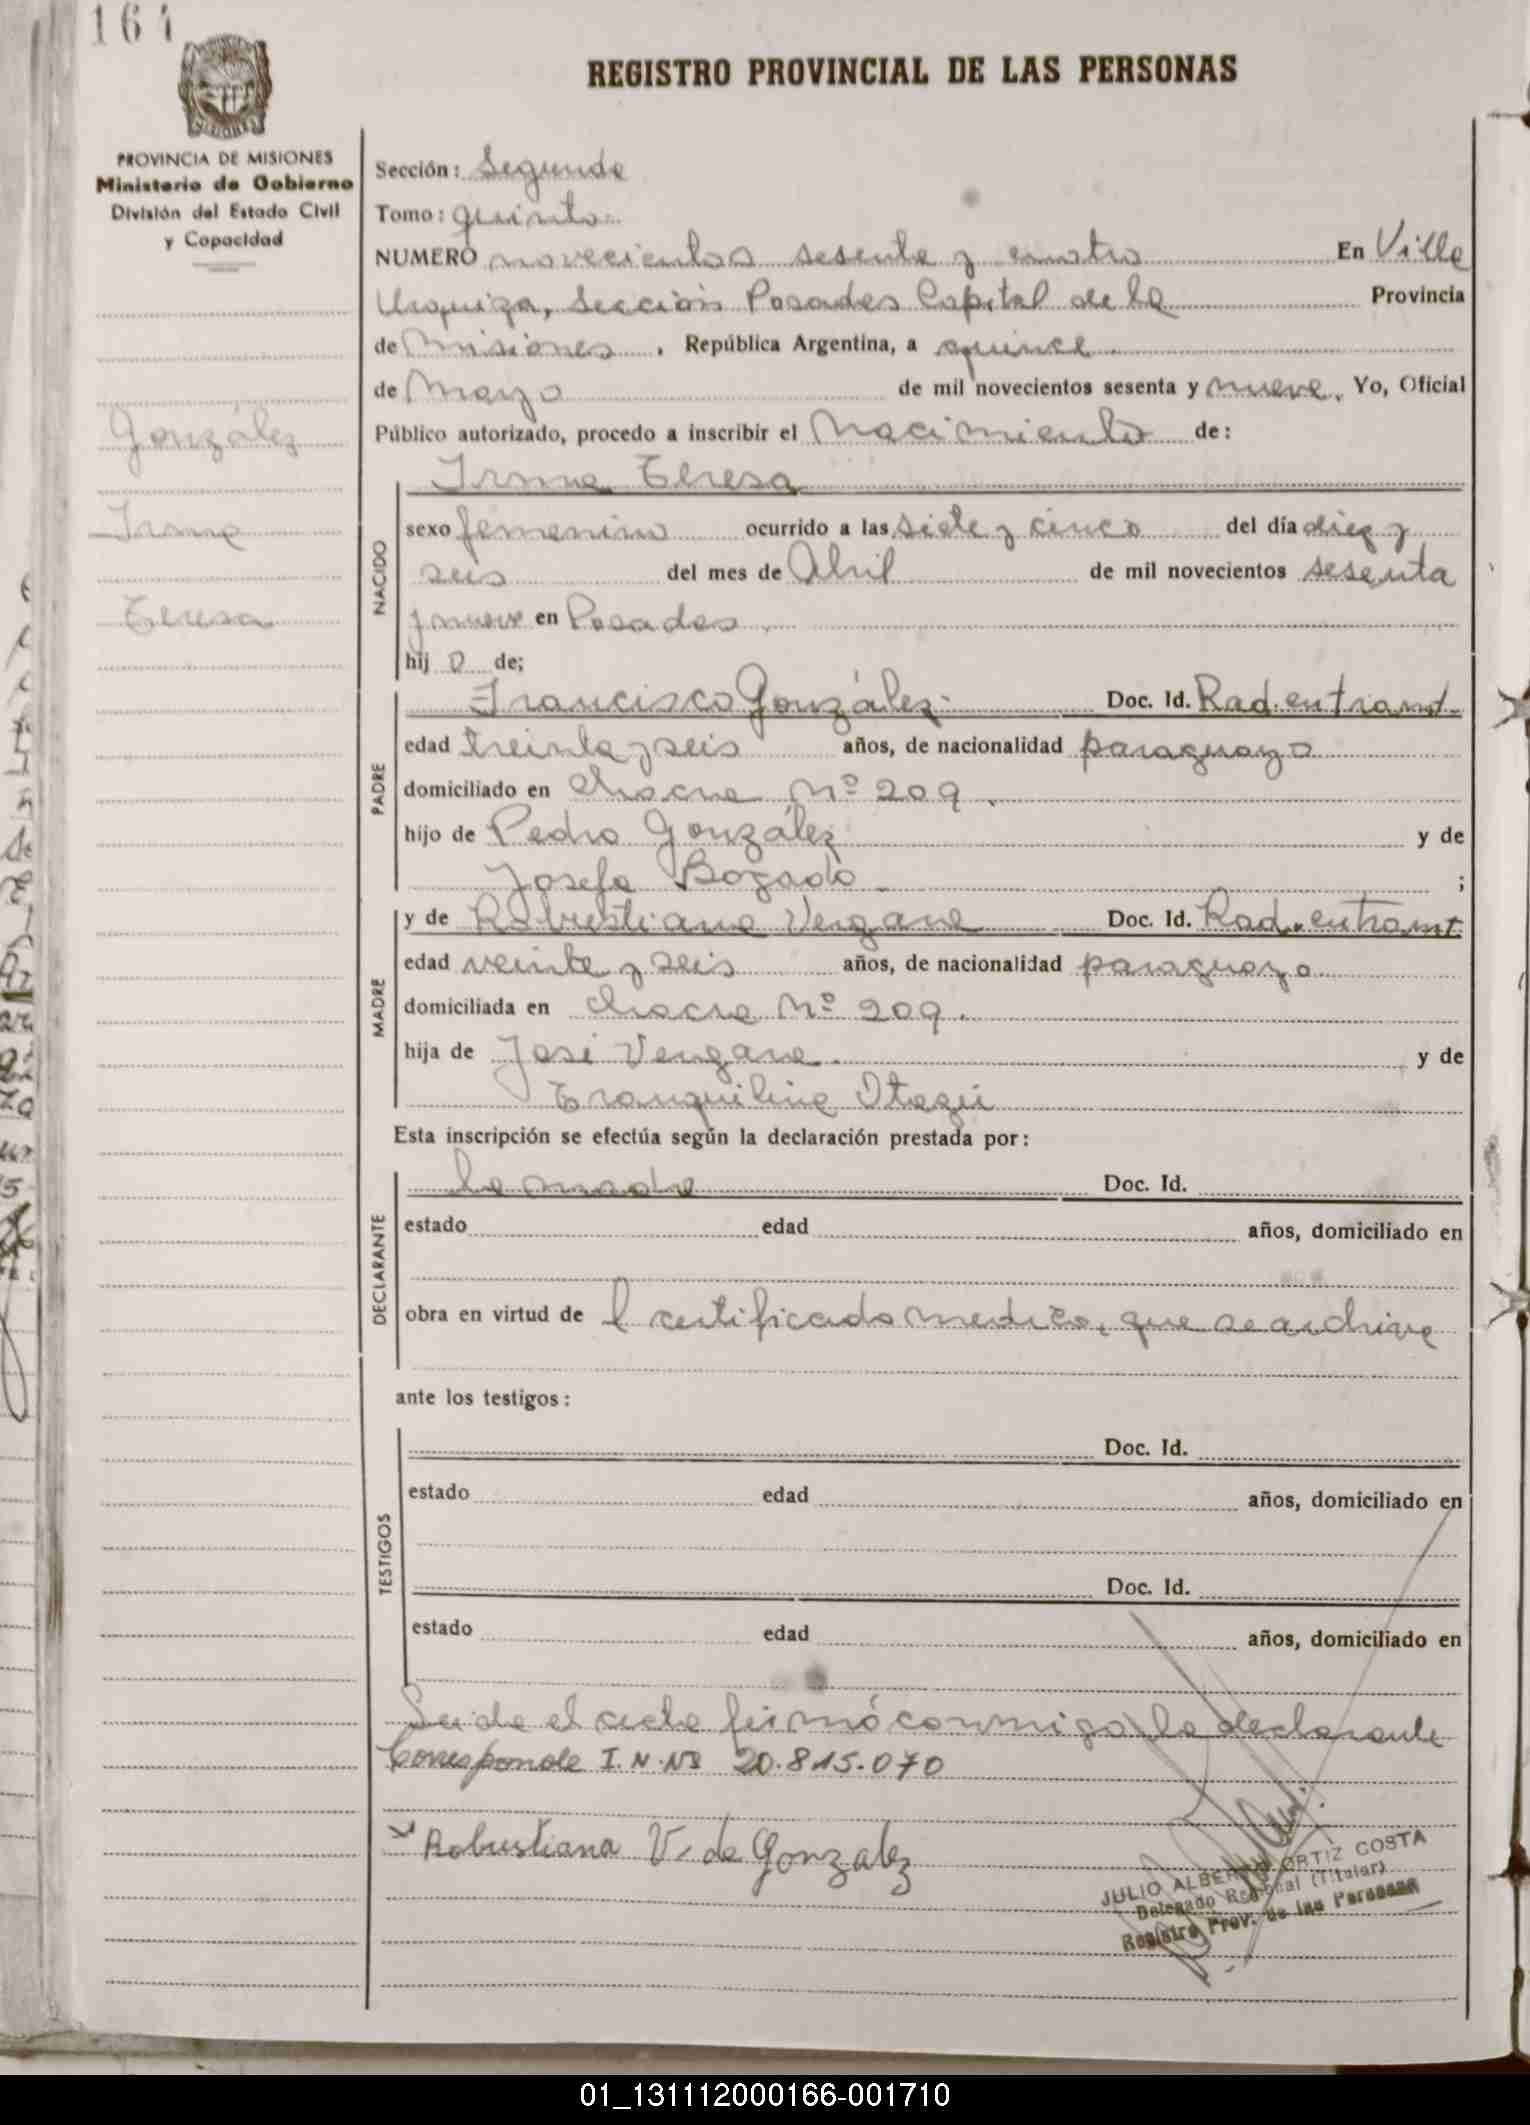 164
REGISTRO PROVINCIAL DE LAS PERSONAS
PROVINCIA DE MISIONES
Ministerio de Gobierno
División del Estado Civil
y Capacidad
González
Irma
Teresa
Sección: Segunda
Tomo: quinto
NUMERO novecientos sesenta y cuatro En Villa
Urquiza, Sección Posadas Capital de la Provincia
de Misiones, República Argentina, a quince
de Mayo de mil novecientos sesenta y nueve, Yo, Oficial
Público autorizado, procedo a inscribir el Nacimiento de:
Irma Teresa
NACIDO
sexo femenino ocurrido a las siete y cinco del día diez y
seis del mes de Abril de mil novecientos sesenta
y nueve en Posadas.
hij a de;
PADRE
Francisco González Doc. Id. Rad. en tramt.
edad treinta y seis años, de nacionalidad paraguayo
domiciliado en chacra Nº 209.
hijo de Pedro González y de
Josefa Bogado ;
MADRE
y de Robustiana Vergara Doc. Id. Rad. en tramt.
edad veinte y seis años, de nacionalidad paraguaya
domiciliada en chacra Nº 209.
hija de José Vergara. y de
Tranquilina Otazú
Esta inscripción se efectúa según la declaración prestada por:
DECLARANTE
la madre Doc. Id.
estado edad años, domiciliado en
obra en virtud de l certificado medico, que se archiva
ante los testigos:
TESTIGOS
Doc. Id.
estado edad años, domiciliado en
Doc. Id.
estado edad años, domiciliado en
Leida el acta firmó conmigo la declarante
Corresponde I. N. Nº 20.815.070
Robustiana V. de Gonzalez
JULIO ALBERTO ORTIZ COSTA
Delegado Regional (Titular)
Registro Prov. de las Personas
01_131112000166-001710